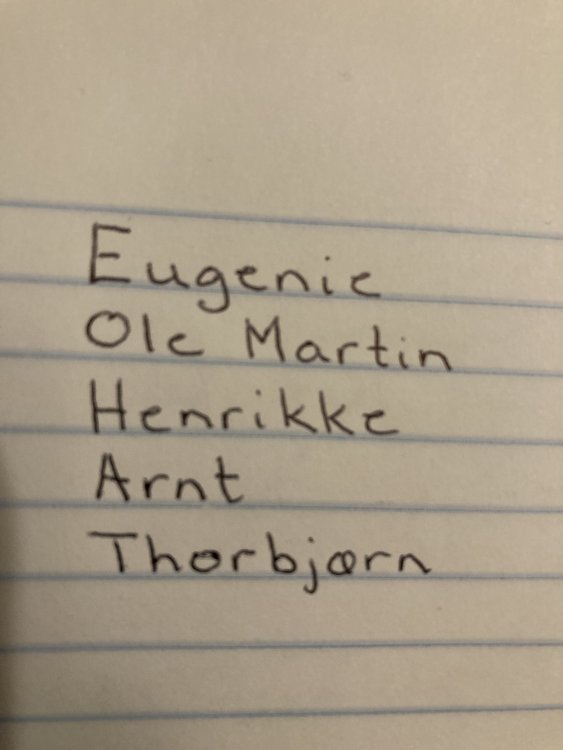 Eugenie
Ole Martin
Henrikke
Arnt
Thorbjørn